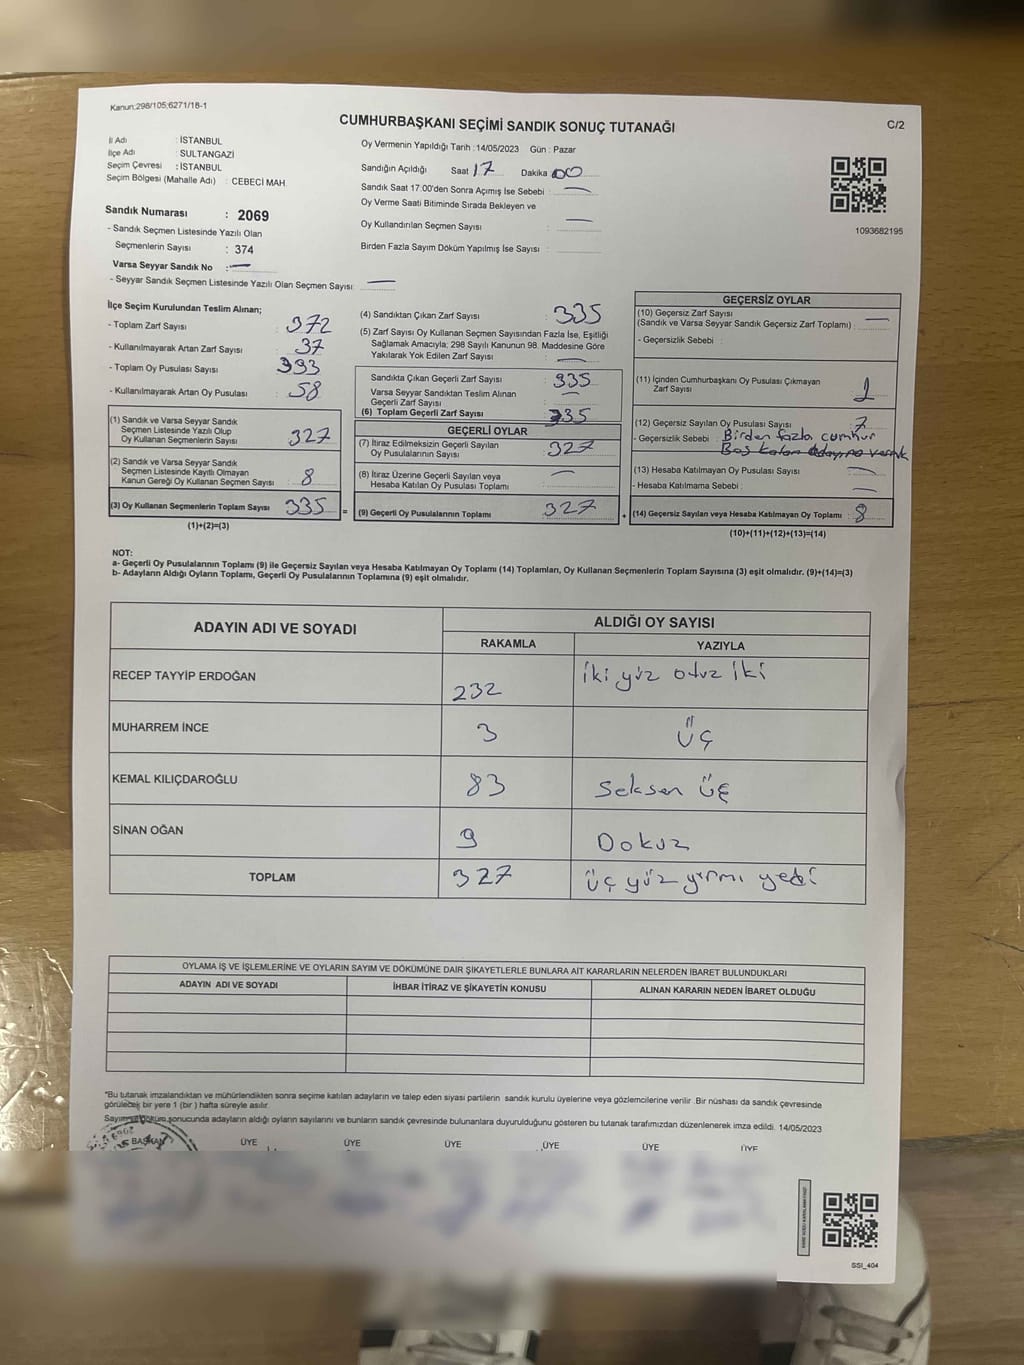 Kanun;298/105;6271/18-1
CUMHURBAŞKANI SEÇİMİ SANDIK SONUÇ TUTANAĞI
C/2
İl Adı : İSTANBUL
İlçe Adı : SULTANGAZİ
Seçim Çevresi : İSTANBUL
Seçim Bölgesi (Mahalle Adı) : CEBECİ MAH.
Sandık Numarası : 2069
- Sandık Seçmen Listesinde Yazılı Olan
Seçmenlerin Sayısı : 374
Varsa Seyyar Sandık No : —
- Seyyar Sandık Seçmen Listesinde Yazılı Olan Seçmen Sayısı : —
Oy Vermenin Yapıldığı Tarih : 14/05/2023 Gün : Pazar
Sandığın Açıldığı Saat 17 Dakika 00
Sandık Saat 17:00'den Sonra Açımış İse Sebebi : —
Oy Verme Saati Bitiminde Sırada Bekleyen ve
Oy Kullandırılan Seçmen Sayısı : —
Birden Fazla Sayım Döküm Yapılmış İse Sayısı :
1093682195
İlçe Seçim Kurulundan Teslim Alınan;
- Toplam Zarf Sayısı : 372
- Kullanılmayarak Artan Zarf Sayısı : 37
- Toplam Oy Pusulası Sayısı : 393
- Kullanılmayarak Artan Oy Pusulası : 58
(1) Sandık ve Varsa Seyyar Sandık
Seçmen Listesinde Yazılı Olup
Oy Kullanan Seçmenlerin Sayısı : 327
(2) Sandık ve Varsa Seyyar Sandık
Seçmen Listesinde Kayıtlı Olmayan
Kanun Gereği Oy Kullanan Seçmen Sayısı : 8
(3) Oy Kullanan Seçmenlerin Toplam Sayısı : 335
(1)+(2)=(3)
(4) Sandıktan Çıkan Zarf Sayısı : 335
(5) Zarf Sayısı Oy Kullanan Seçmen Sayısından Fazla İse, Eşitliği
Sağlamak Amacıyla; 298 Sayılı Kanunun 98. Maddesine Göre
Yakılarak Yok Edilen Zarf Sayısı : —
Sandıkta Çıkan Geçerli Zarf Sayısı : 335
Varsa Seyyar Sandıktan Teslim Alınan
Geçerli Zarf Sayısı : —
(6) Toplam Geçerli Zarf Sayısı : 335
GEÇERLİ OYLAR
(7) İtiraz Edilmeksizin Geçerli Sayılan
Oy Pusulalarının Sayısı : 327
(8) İtiraz Üzerine Geçerli Sayılan veya
Hesaba Katılan Oy Pusulası Toplamı : —
= (9) Geçerli Oy Pusulalarının Toplamı : 327
GEÇERSİZ OYLAR
(10) Geçersiz Zarf Sayısı
(Sandık ve Varsa Seyyar Sandık Geçersiz Zarf Toplamı) : —
- Geçersizlik Sebebi :
(11) İçinden Cumhurbaşkanı Oy Pusulası Çıkmayan
Zarf Sayısı : 1
(12) Geçersiz Sayılan Oy Pusulası Sayısı : 7
- Geçersizlik Sebebi : Birden fazla cumhur
Baş kalan adayına
(13) Hesaba Katılmayan Oy Pusulası Sayısı : —
- Hesaba Katılmama Sebebi : —
+ (14) Geçersiz Sayılan veya Hesaba Katılmayan Oy Toplamı : 8
(10)+(11)+(12)+(13)=(14)
NOT:
a- Geçerli Oy Pusulalarının Toplamı (9) ile Geçersiz Sayılan veya Hesaba Katılmayan Oy Toplamı (14) Toplamları, Oy Kullanan Seçmenlerin Toplam Sayısına (3) eşit olmalıdır. (9)+(14)=(3)
b- Adayların Aldığı Oyların Toplamı, Geçerli Oy Pusulalarının Toplamına (9) eşit olmalıdır.
ADAYIN ADI VE SOYADI
ALDIĞI OY SAYISI
RAKAMLA YAZIYLA
RECEP TAYYİP ERDOĞAN 232 iki yüz otuz iki
MUHARREM İNCE 3 Üç
KEMAL KILIÇDAROĞLU 83 Seksen üç
SİNAN OĞAN 9 Dokuz
TOPLAM 327 üç yüz yirmi yedi
OYLAMA İŞ VE İŞLEMLERİNE VE OYLARIN SAYIM VE DÖKÜMÜNE DAİR ŞİKAYETLERLE BUNLARA AİT KARARLARIN NELERDEN İBARET BULUNDUKLARI
ADAYIN ADI VE SOYADI İHBAR İTİRAZ VE ŞİKAYETİN KONUSU ALINAN KARARIN NEDEN İBARET OLDUĞU
*Bu tutanak imzalandıktan ve mühürlendikten sonra seçime katılan adayların ve talep eden siyasi partilerin sandık kurulu üyelerine veya gözlemcilerine verilir. Bir nüshası da sandık çevresinde
görülecek bir yere 1 (bir) hafta süreyle asılır.
Sayım ve döküm sonucunda adayların aldığı oyların sayılarını ve bunların sandık çevresinde bulunanlara duyurulduğunu gösteren bu tutanak tarafımızdan düzenlenerek imza edildi. 14/05/2023
BAŞKAN ÜYE ÜYE ÜYE ÜYE ÜYE ÜYE
SSI_404